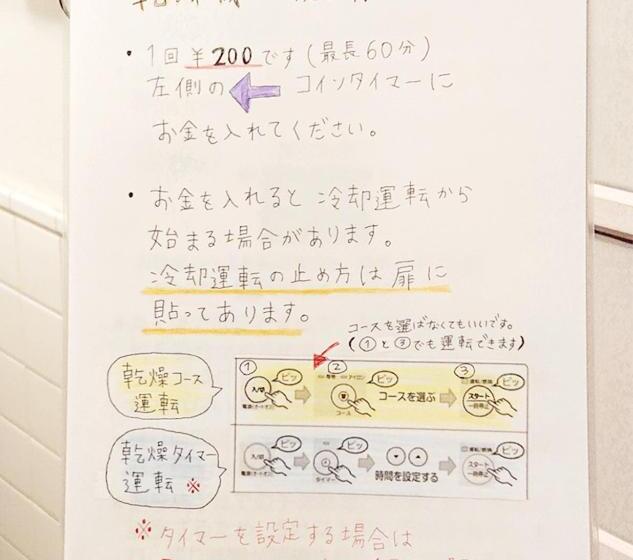 ・1回 ¥200です(最長60分)
左側の ← コインタイマーに
お金を入れてください。
・お金を入れると 冷却運転から
始まる場合があります。
冷却運転の止め方は 扉に
貼ってあります。
コースを選ばなくてもいいです。
(①と③でも運転できます)
乾燥コース
運転
① ピッ ② ピッ ③ ピッ
入/切 コースを選ぶ スタート
一時停止
コース
乾燥タイマー
運転 ※
ピッ ピッ ピッ
入/切 時間を設定する スタート
一時停止
タイマー
※タイマーを設定する場合は